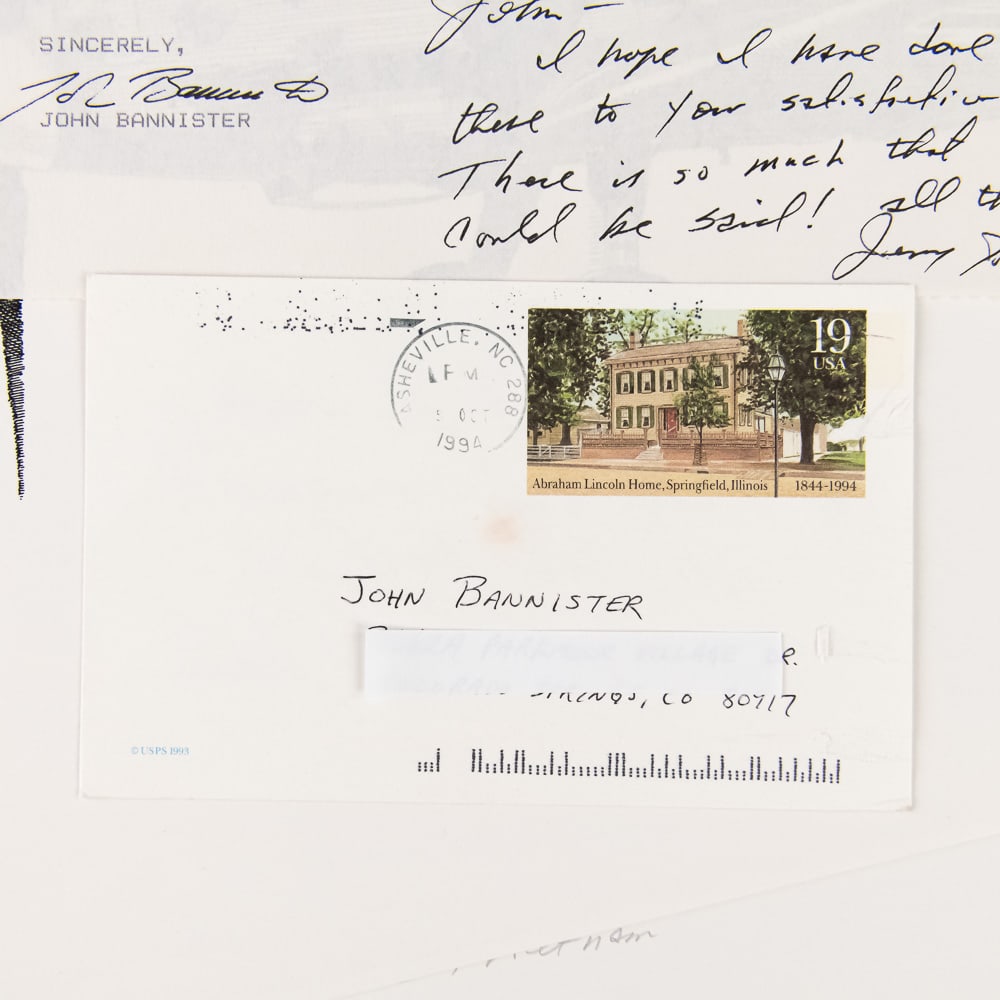 SINCERELY,
John Bannister
JOHN BANNISTER
John —
I hope I have done
these to your satisfaction
There is so much that
could be said! all th
Jerry
ASHEVILLE, NC 288
PM
5 OCT
1994
19
USA
Abraham Lincoln Home, Springfield, Illinois 1844-1994
JOHN BANNISTER
DR.
SPRINGS, CO 80917
© USPS 1993
Vietnam